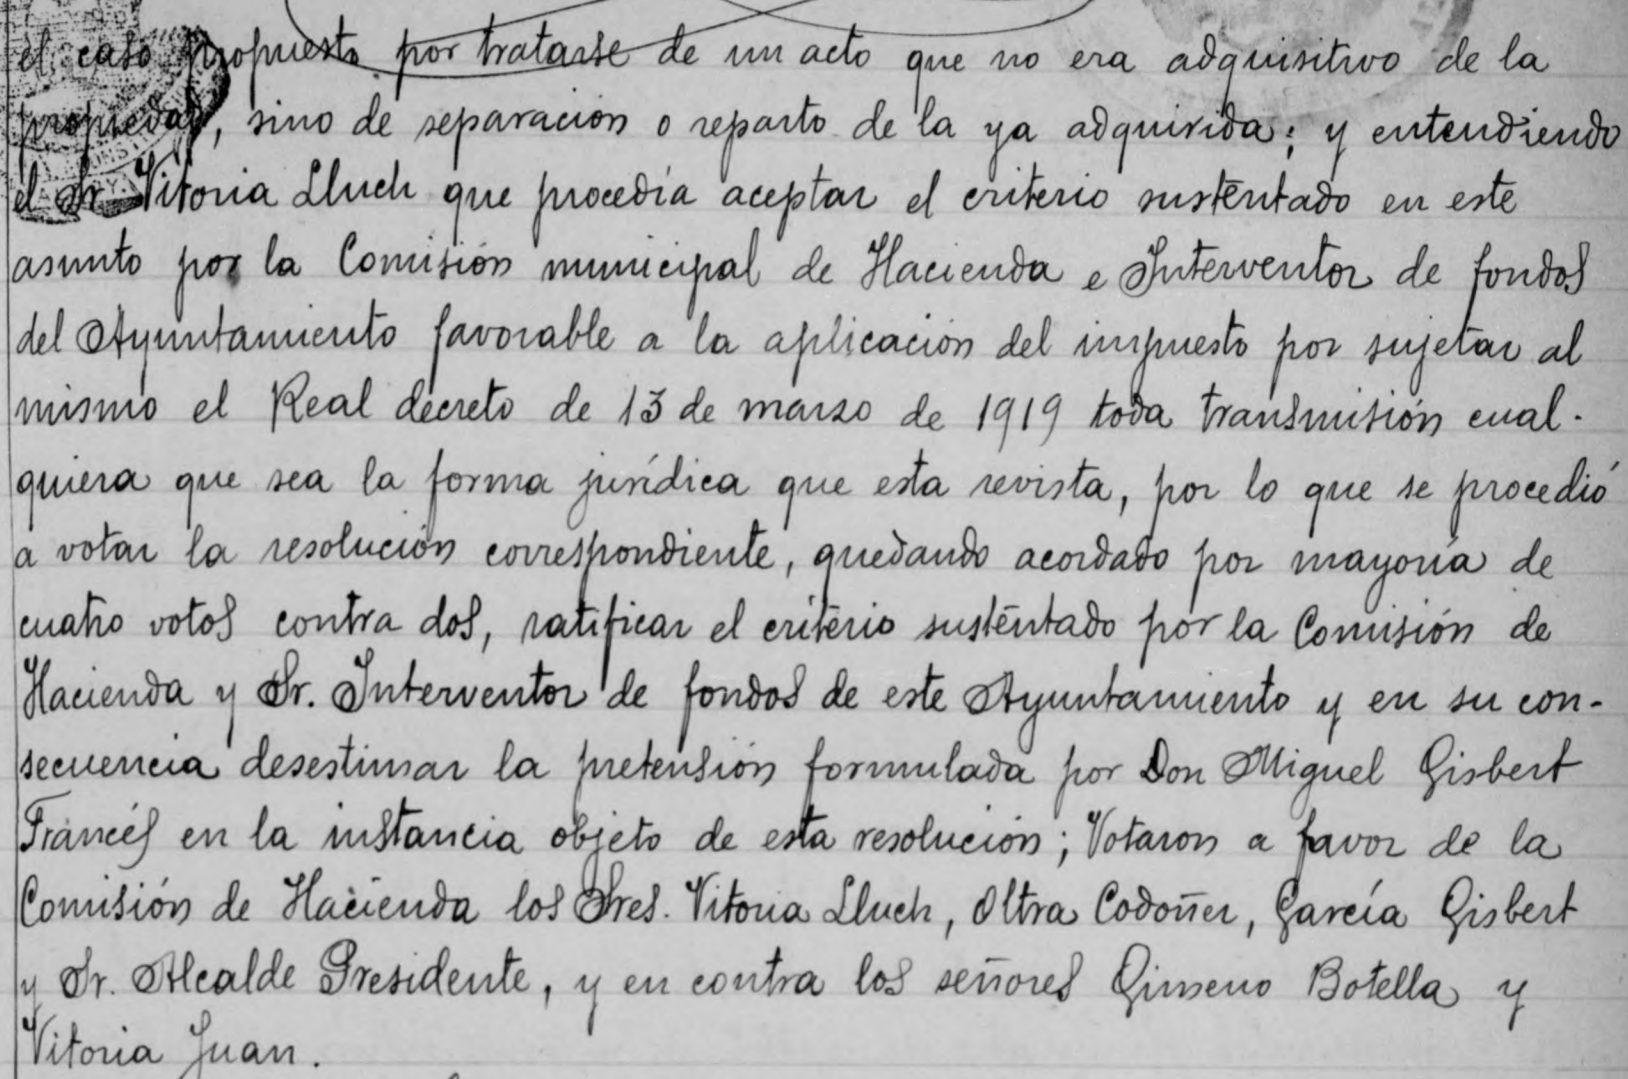 el caso propuesto por tratarse de un acto que no era adquisitivo de la
propiedad, sino de separación o reparto de la ya adquirida; y entendiendo
el Sr. Vitoria Lluch que procedía aceptar el criterio sustentado en este
asunto por la Comisión municipal de Hacienda e Interventor de fondos
del Ayuntamiento favorable a la aplicación del impuesto por sujetar al
mismo el Real decreto de 13 de marzo de 1919 toda transmisión cual-
quiera que sea la forma jurídica que esta revista, por lo que se procedió
a votar la resolución correspondiente, quedando acordado por mayoría de
cuatro votos contra dos, ratificar el criterio sustentado por la Comisión de
Hacienda y Sr. Interventor de fondos de este Ayuntamiento y en su con-
secuencia desestimar la pretensión formulada por Don Miguel Gisbert
Francés en la instancia objeto de esta resolución; Votaron a favor de la
Comisión de Hacienda los Sres. Vitoria Lluch, Oltra Codoñer, García Gisbert
y Sr. Alcalde Presidente, y en contra los señores Gimeno Botella y
Vitoria Juan.